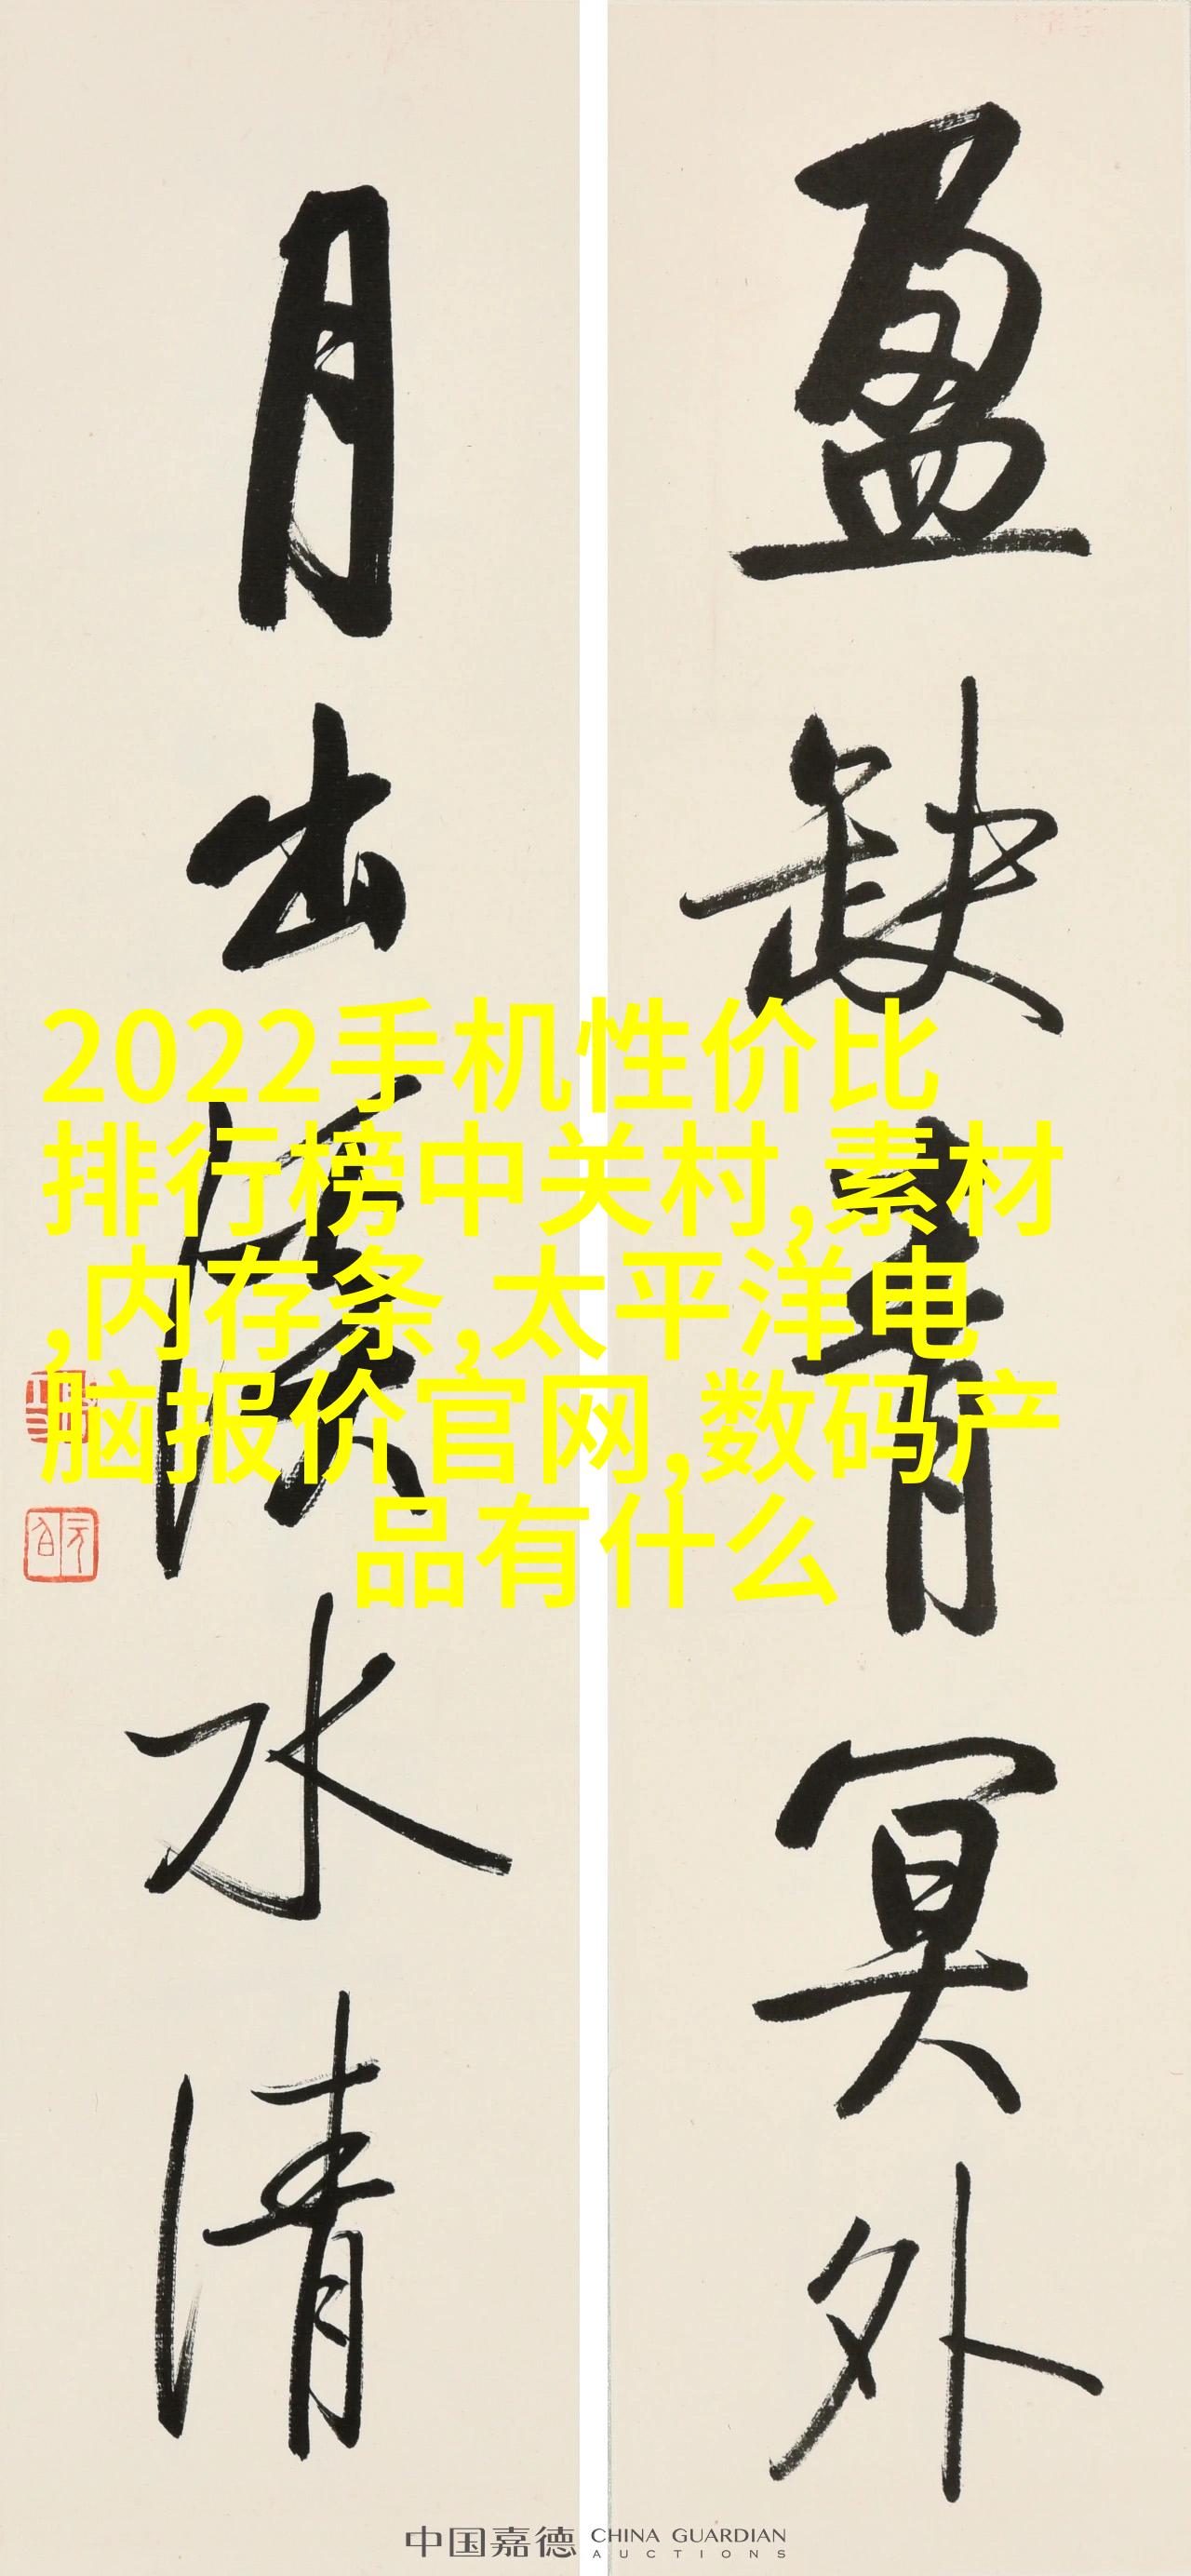 盈缺青冥外
月出溪水清
2022手机性价比
排行榜中关村,素材
,内存条,太平洋电
脑报价官网,数码产
品有什么
中国嘉德 CHINA GUARDIAN
AUCTIONS